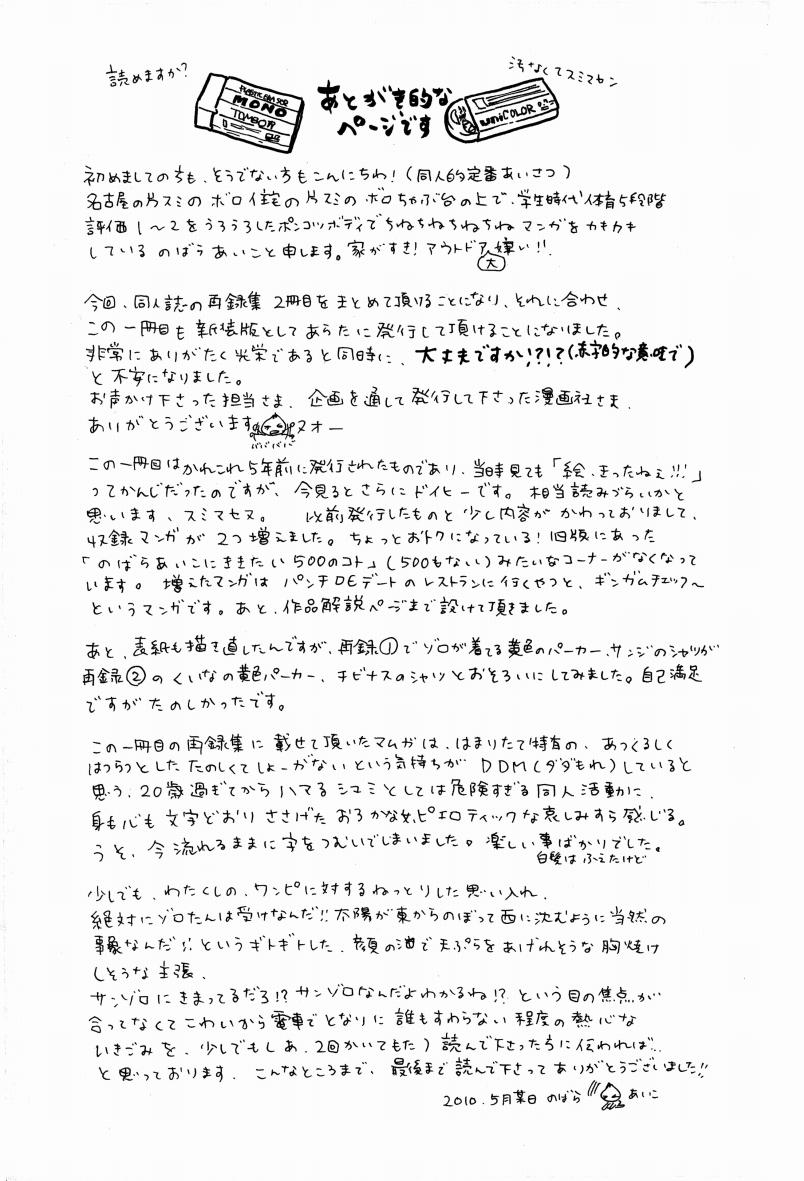 読めますか?
汚なくてスミマセン
PLASTIC ERASER
MONO
TOMBOW
あとがき的な
ページです
uni COLOR
初めましての方も、そうでない方もこんにちわ!(同人的定番あいさつ)
名古屋の片スミの ボロ住宅の片スミの ボロちゃぶ台の上で、学生時代体育5段階
評価1〜2をうろうろしたポンコツボディでちねちねちねちね マンガをカキカキ
している のばらあいこと申します。家がすき!アウトドア大嫌い!!
今回、同人誌の再録集 2冊目をまとめて頂けることになり、それに合わせ、
この一冊目も新装版としてあらたに発行して頂けることになりました。
非常にありがたく光栄であると同時に、大丈夫ですか!?!?(赤字的な意味で)
と不安になりました。
お声かけ下さった担当さま、企画を通して発行して下さった漫画社さま、
ありがとうございます ヌオー
この一冊目はかれこれ5年前に発行されたものであり、当時見ても「絵、きったねぇ!!!」
ってかんじだったのですが、今見るとさらにドイヒーです。相当読みづらいかと
思います、スミマセヌ。 以前発行したものと少し内容がかわっておりまして、
収録マンガが2つ増えました。ちょっとおトクになっている!旧版にあった
「のばらあいこにききたい500のコト」(500もない)みたいなコーナーがなくなって
います。増えたマンガは パンチDEデートのレストランに行くやつと、ギンガムチェック〜
というマンガです。あと、作品解説ページまで設けて頂きました。
あと、表紙も描き直したんですが、再録①でゾロが着てる黄色のパーカー、サンジのシャツが
再録②のくいなの黄色パーカー、チビナスのシャツとおそろいにしてみました。自己満足
ですがたのしかったです。
この一冊目の再録集に載せて頂いたマムガは、はまりたて特有の、あつくるしく
はつらつとしたたのしくてしょーがないという気持ちがDDM(ダダもれ)していると
思う、20歳過ぎてからハマるシュミとしては危険すぎる同人活動に、
身も心も文字どおりささげたおろかな女、ピエロティックな哀しみすら感じる。
うそ、今流れるままに字をつむいでしまいました。楽しい事ばかりでした。
白髪はふえたけど
少しでも、わたくしの、ワンピに対するねっとりした思い入れ、
絶対にゾロたんは受けなんだ!!太陽が東からのぼって西に沈むように当然の
事象なんだ!!というギトギトした、顔の油で天ぷらをあげれそうな胸焼け
しそうな主張、
サンゾロにきまってるだろ!?サンゾロなんだよわかるね!?という目の焦点が
合ってなくてこわいから電車でとなりに誰もすわらない程度の熱心な
いきごみを、少しでも(しあ、2回かいてもた)読んで下さった方に伝われば…
と思っております、こんなところまで、最後まで読んで下さってありがとうございました!!
2010.5月某日 のばら あいこ